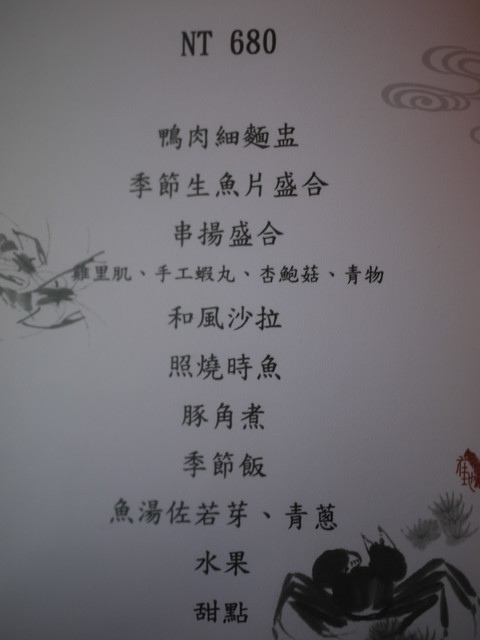 NT 680
鴨肉細麵盅
季節生魚片盛合
串揚盛合
雞里肌、手工蝦丸、杏鮑菇、青物
和風沙拉
照燒時魚
豚角煮
季節飯
魚湯佐若芽、青蔥
水果
甜點